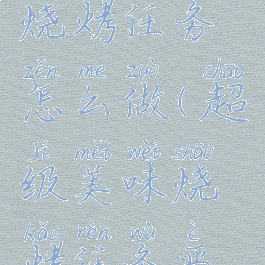 烧烤任务
zěn me zuò chāo
怎么做(超
jí měi wèi shāo
级美味烧
kǎo rèn wù è
烤任务恶